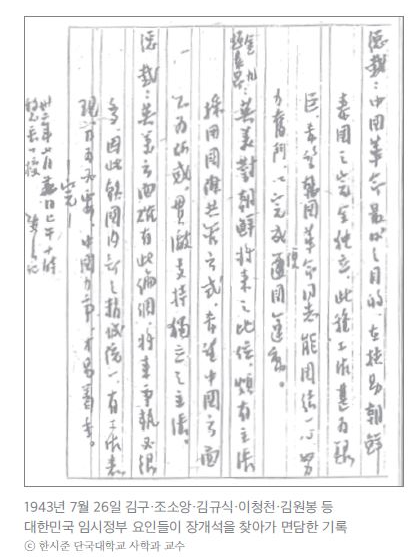 總裁：中國革命最後之目的，在扶助朝鮮
泰國之完全獨立，此種工作甚為艱
巨，希望韓國革命同志能團結一心努
力奮鬥，以完成復國運動。
金九
趙素昂：英美對朝鮮將來之地位，頗有主張
採用國際共管方式，希望中國方面
不為所惑，貫徹支持獨立之主張。
總裁：英美方面確有此論調，將來爭執必很
多，因此韓國內部之精誠統一，有工作表
現，中國力爭，才易著手。
完
卅二年七月廿六日上午十時
1943년 7월 26일 김구·조소앙·김규식·이청천·김원봉 등
대한민국 임시정부 요인들이 장개석을 찾아가 면담한 기록
ⓒ 한시준 단국대학교 사학과 교수